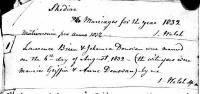 Skidine
Marriages for the year 1832.
Matrimonia pro anno 1832 J. Walsh
1 Lawrence Brien & Johanna Donovan were married
on the 6th day of August, 1832 - (the witnesses were
Maurice Griffin & Anne Donovan) by me
J. Walsh